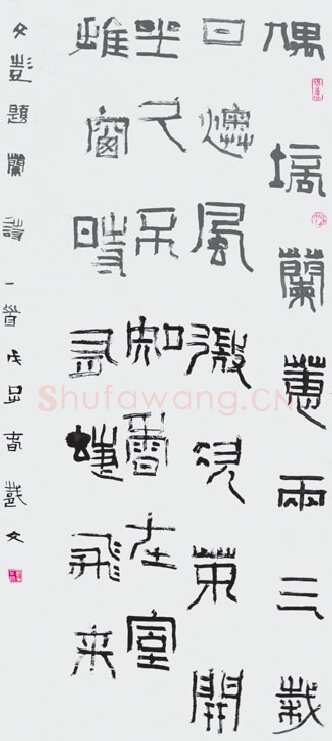 偶培蘭蕙兩三栽
日煖風微次第開
坐久不知香在室
推窗時有蝶飛来
文彭題蘭詩一首戊春戴文
Shufawang.CN